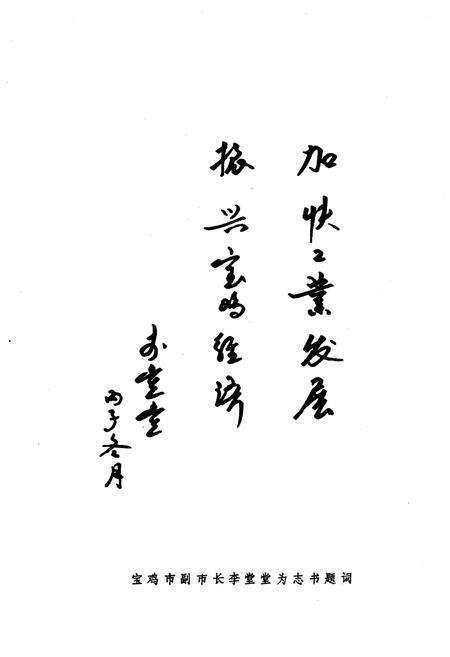 加快工業发展
振兴宝鸡经济
李堂堂
丙子冬月
宝鸡市副市长李堂堂为志书题词